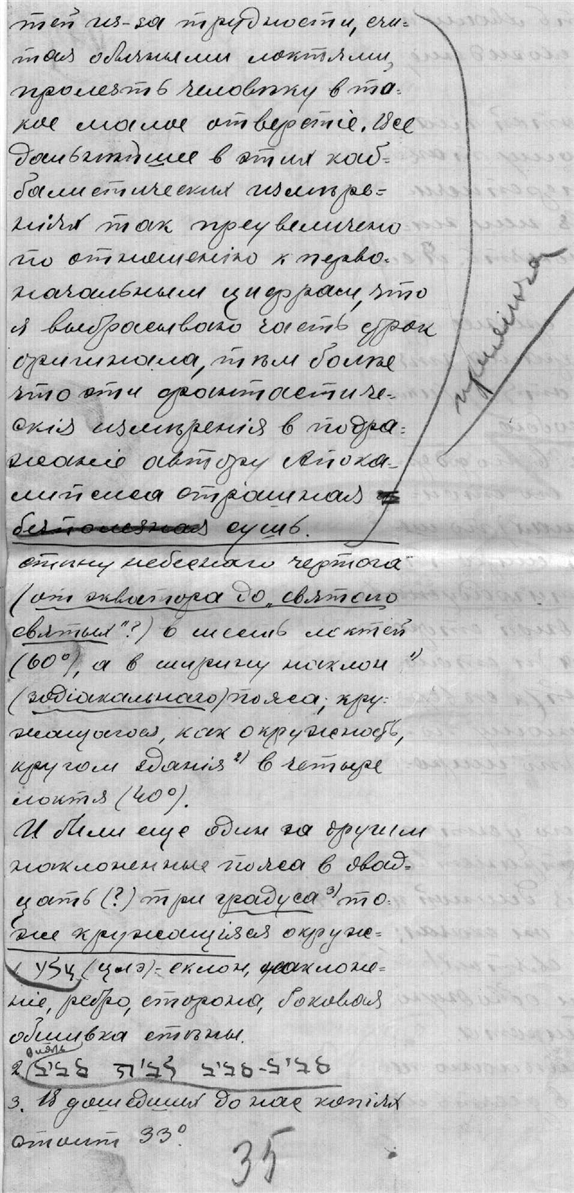 тей из-за трудности, счи-
тая обычными локтями,
пролезть человѣку в та-
кое малое отверстіе. Все
дальнѣйшее в этих каб-
балистических измѣре-
ніях так преувеличено
по отношенію к перво-
начальным цифрам, что
я выбрасываю часть строк
оригинала, тѣм болѣе
что эти фантастиче-
скія измѣренія в подра-
жаніе автору Апока-
липсиса страшная
безполезная сушь.
стѣну небеснаго чертога
(от экватора до „святого
святых"?) в шесть локтей
(60°), а в ширину наклон 1)
(зодіакальнаго) пояса, кру-
жащагося, как окружность,
кругом зданія 2) в четыре
локтя (40°).
И были еще один за другим
наклоненные пояса в двад-
цать (?) три градуса 3) то-
же кружащіяся окруж-
1 צלע (цлэ)- склон, наклоне-
ніе, ребро, сторона, боковая
обшивка стѣны.
2. סביב לבית סביב-סביב
3. В дошедших до нас копіях
стоит 33°.
35